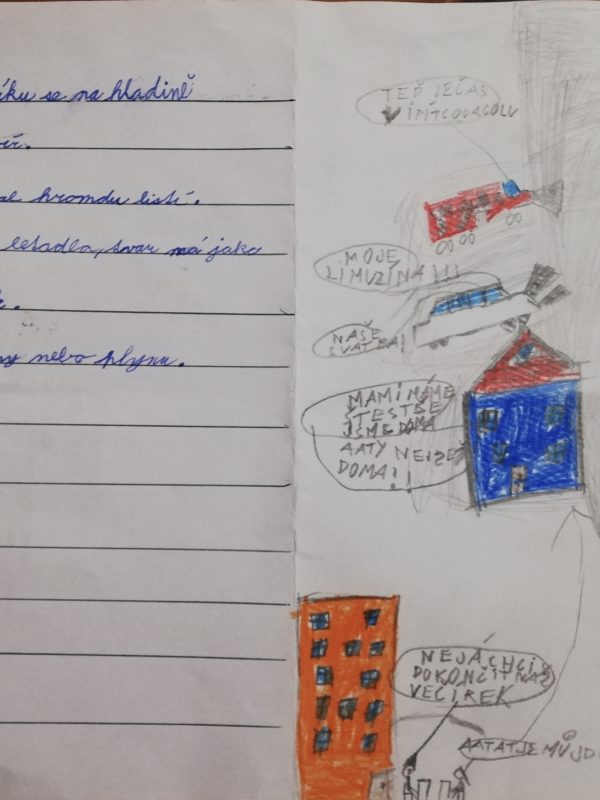 íku se na hladině
se hromdu listí.
letadla, tvar má jako
ny nebo plynu.
TEĎ JEČAS
VIPÍTCOCACOLU
MOJE
LIMUZÍNA!!!
NAŠE
SVATBA!
MAMI MÁME
ŠTESTÍŽE
JSME DOMA
AATY NEJZE
DOMA!!
NEJÁCHCI
DOKONČIT NAŠ
VEČÍREK
AATATJEMŮJD